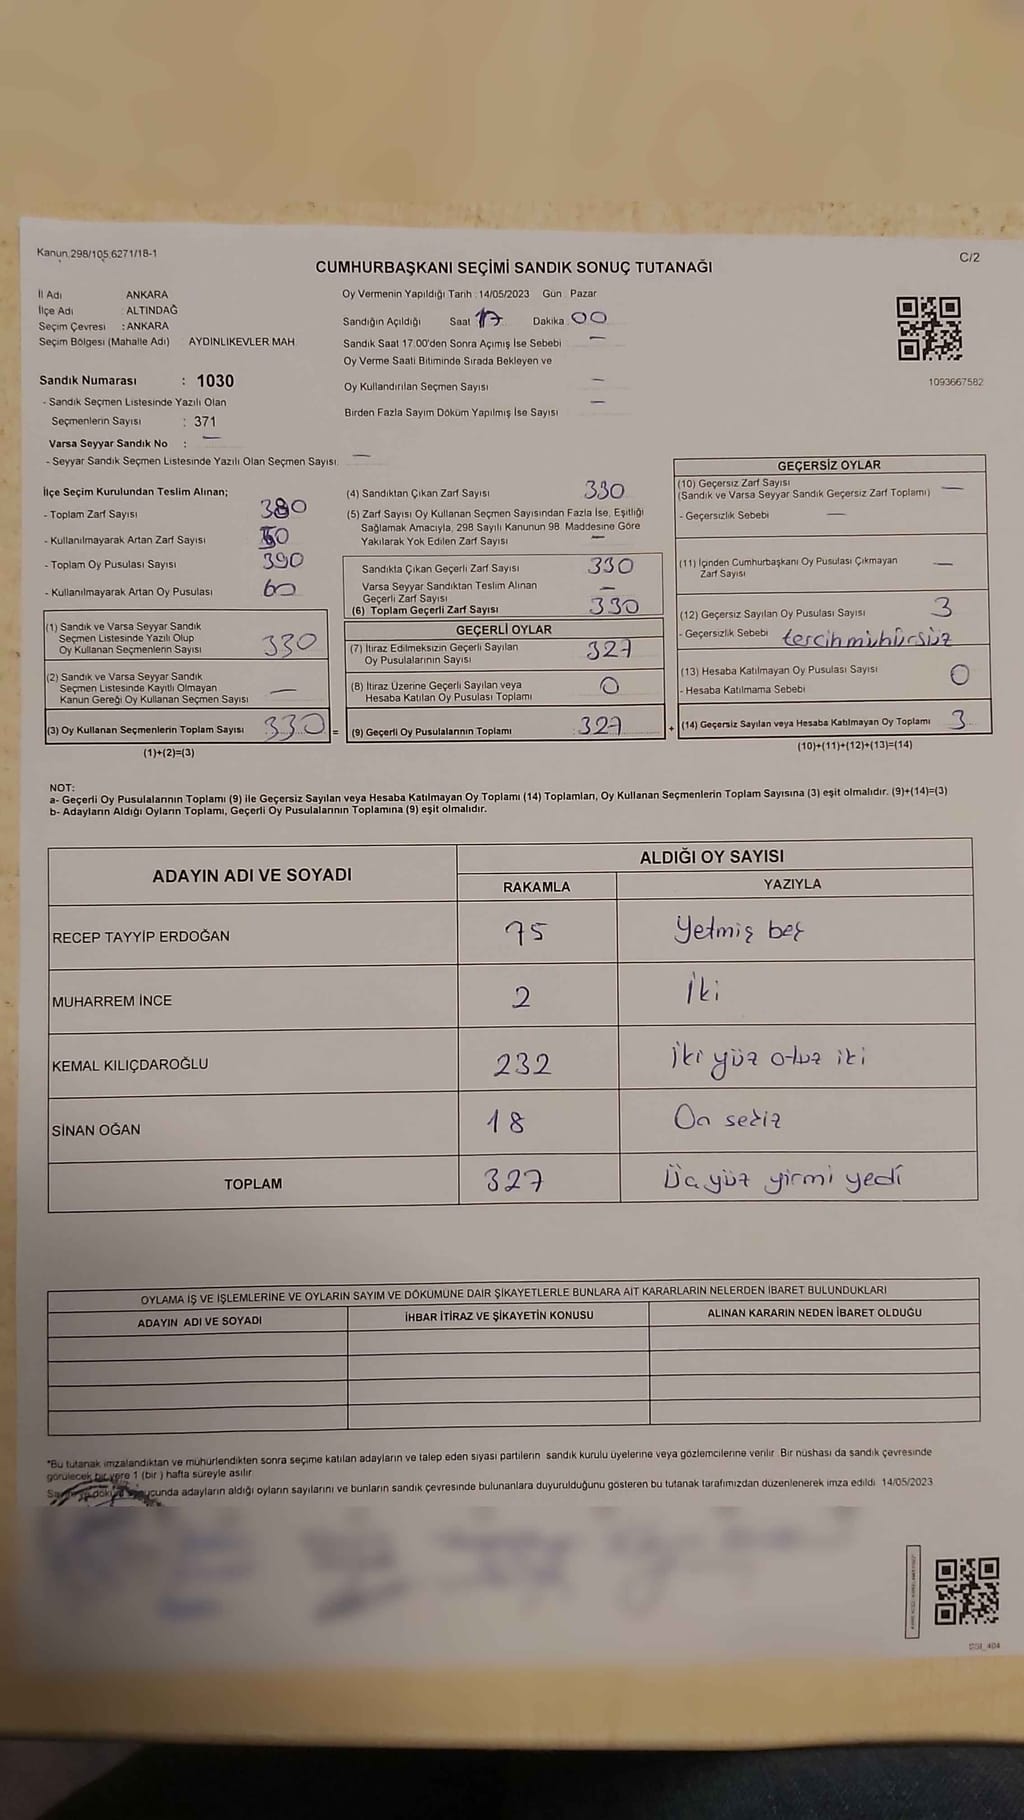 Kanun.298/105,6271/18-1
C/2
CUMHURBAŞKANI SEÇİMİ SANDIK SONUÇ TUTANAĞI
İl Adı ANKARA
İlçe Adı : ALTINDAĞ
Seçim Çevresi : ANKARA
Seçim Bölgesi (Mahalle Adı) AYDINLIKEVLER MAH.
Sandık Numarası : 1030
- Sandık Seçmen Listesinde Yazılı Olan
Seçmenlerin Sayısı : 371
Varsa Seyyar Sandık No : —
- Seyyar Sandık Seçmen Listesinde Yazılı Olan Seçmen Sayısı. —
Oy Vermenin Yapıldığı Tarih : 14/05/2023 Gün : Pazar
Sandığın Açıldığı Saat 17 Dakika 00
Sandık Saat 17.00'den Sonra Açımış İse Sebebi —
Oy Verme Saati Bitiminde Sırada Bekleyen ve
Oy Kullandırılan Seçmen Sayısı —
Birden Fazla Sayım Döküm Yapılmış İse Sayısı —
1093667582
İlçe Seçim Kurulundan Teslim Alınan;
- Toplam Zarf Sayısı 380
- Kullanılmayarak Artan Zarf Sayısı 50
- Toplam Oy Pusulası Sayısı 390
- Kullanılmayarak Artan Oy Pusulası 60
(1) Sandık ve Varsa Seyyar Sandık
Seçmen Listesinde Yazılı Olup
Oy Kullanan Seçmenlerin Sayısı 330
(2) Sandık ve Varsa Seyyar Sandık
Seçmen Listesinde Kayıtlı Olmayan
Kanun Gereği Oy Kullanan Seçmen Sayısı —
(3) Oy Kullanan Seçmenlerin Toplam Sayısı 330 =
(1)+(2)=(3)
(4) Sandıktan Çıkan Zarf Sayısı 330
(5) Zarf Sayısı Oy Kullanan Seçmen Sayısından Fazla İse, Eşitliği
Sağlamak Amacıyla, 298 Sayılı Kanunun 98. Maddesine Göre
Yakılarak Yok Edilen Zarf Sayısı —
Sandıkta Çıkan Geçerli Zarf Sayısı 330
Varsa Seyyar Sandıktan Teslim Alınan
Geçerli Zarf Sayısı —
(6) Toplam Geçerli Zarf Sayısı 330
GEÇERLİ OYLAR
(7) İtiraz Edilmeksizin Geçerli Sayılan
Oy Pusulalarının Sayısı 327
(8) İtiraz Üzerine Geçerli Sayılan veya
Hesaba Katılan Oy Pusulası Toplamı 0
(9) Geçerli Oy Pusulalarının Toplamı : 327 +
GEÇERSİZ OYLAR
(10) Geçersiz Zarf Sayısı
(Sandık ve Varsa Seyyar Sandık Geçersiz Zarf Toplamı) —
- Geçersizlik Sebebi —
(11) İçinden Cumhurbaşkanı Oy Pusulası Çıkmayan
Zarf Sayısı —
(12) Geçersiz Sayılan Oy Pusulası Sayısı 3
- Geçersizlik Sebebi tercih mühürsüz
(13) Hesaba Katılmayan Oy Pusulası Sayısı 0
- Hesaba Katılmama Sebebi
(14) Geçersiz Sayılan veya Hesaba Katılmayan Oy Toplamı 3
(10)+(11)+(12)+(13)=(14)
NOT:
a- Geçerli Oy Pusulalarının Toplamı (9) ile Geçersiz Sayılan veya Hesaba Katılmayan Oy Toplamı (14) Toplamları, Oy Kullanan Seçmenlerin Toplam Sayısına (3) eşit olmalıdır. (9)+(14)=(3)
b- Adayların Aldığı Oyların Toplamı, Geçerli Oy Pusulalarının Toplamına (9) eşit olmalıdır.
ADAYIN ADI VE SOYADI ALDIĞI OY SAYISI
RAKAMLA YAZIYLA
RECEP TAYYİP ERDOĞAN 75 Yetmiş beş
MUHARREM İNCE 2 İki
KEMAL KILIÇDAROĞLU 232 İki yüz otuz iki
SİNAN OĞAN 18 On sekiz
TOPLAM 327 Üç yüz yirmi yedi
OYLAMA İŞ VE İŞLEMLERİNE VE OYLARIN SAYIM VE DÖKÜMÜNE DAİR ŞİKAYETLERLE BUNLARA AİT KARARLARIN NELERDEN İBARET BULUNDUKLARI
ADAYIN ADI VE SOYADI İHBAR İTİRAZ VE ŞİKAYETİN KONUSU ALINAN KARARIN NEDEN İBARET OLDUĞU
*Bu tutanak imzalandıktan ve mühürlendikten sonra seçime katılan adayların ve talep eden siyasi partilerin sandık kurulu üyelerine veya gözlemcilerine verilir. Bir nüshası da sandık çevresinde
görülecek bir yere 1 (bir ) hafta süreyle asılır.
adayların aldığı oyların sayılarını ve bunların sandık çevresinde bulunanlara duyurulduğunu gösteren bu tutanak tarafımızdan düzenlenerek imza edildi. 14/05/2023